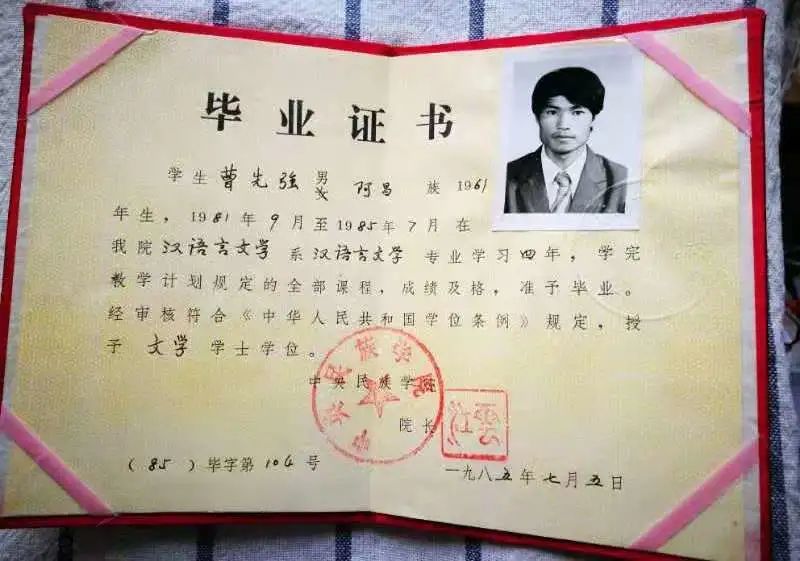 毕业证书
学生 曹先强 男女 阿昌 族 1961
年生，1981年9月至1985年7月在
我院汉语言文学系汉语言文学专业学习四年，学完
教学计划规定的全部课程，成绩及格，准予毕业。
经审核符合《中华人民共和国学位条例》规定，授
予 文学 学士学位。
中央民族学院
院长
中央民族学院
（85）毕字第104号
一九八五年七月五日